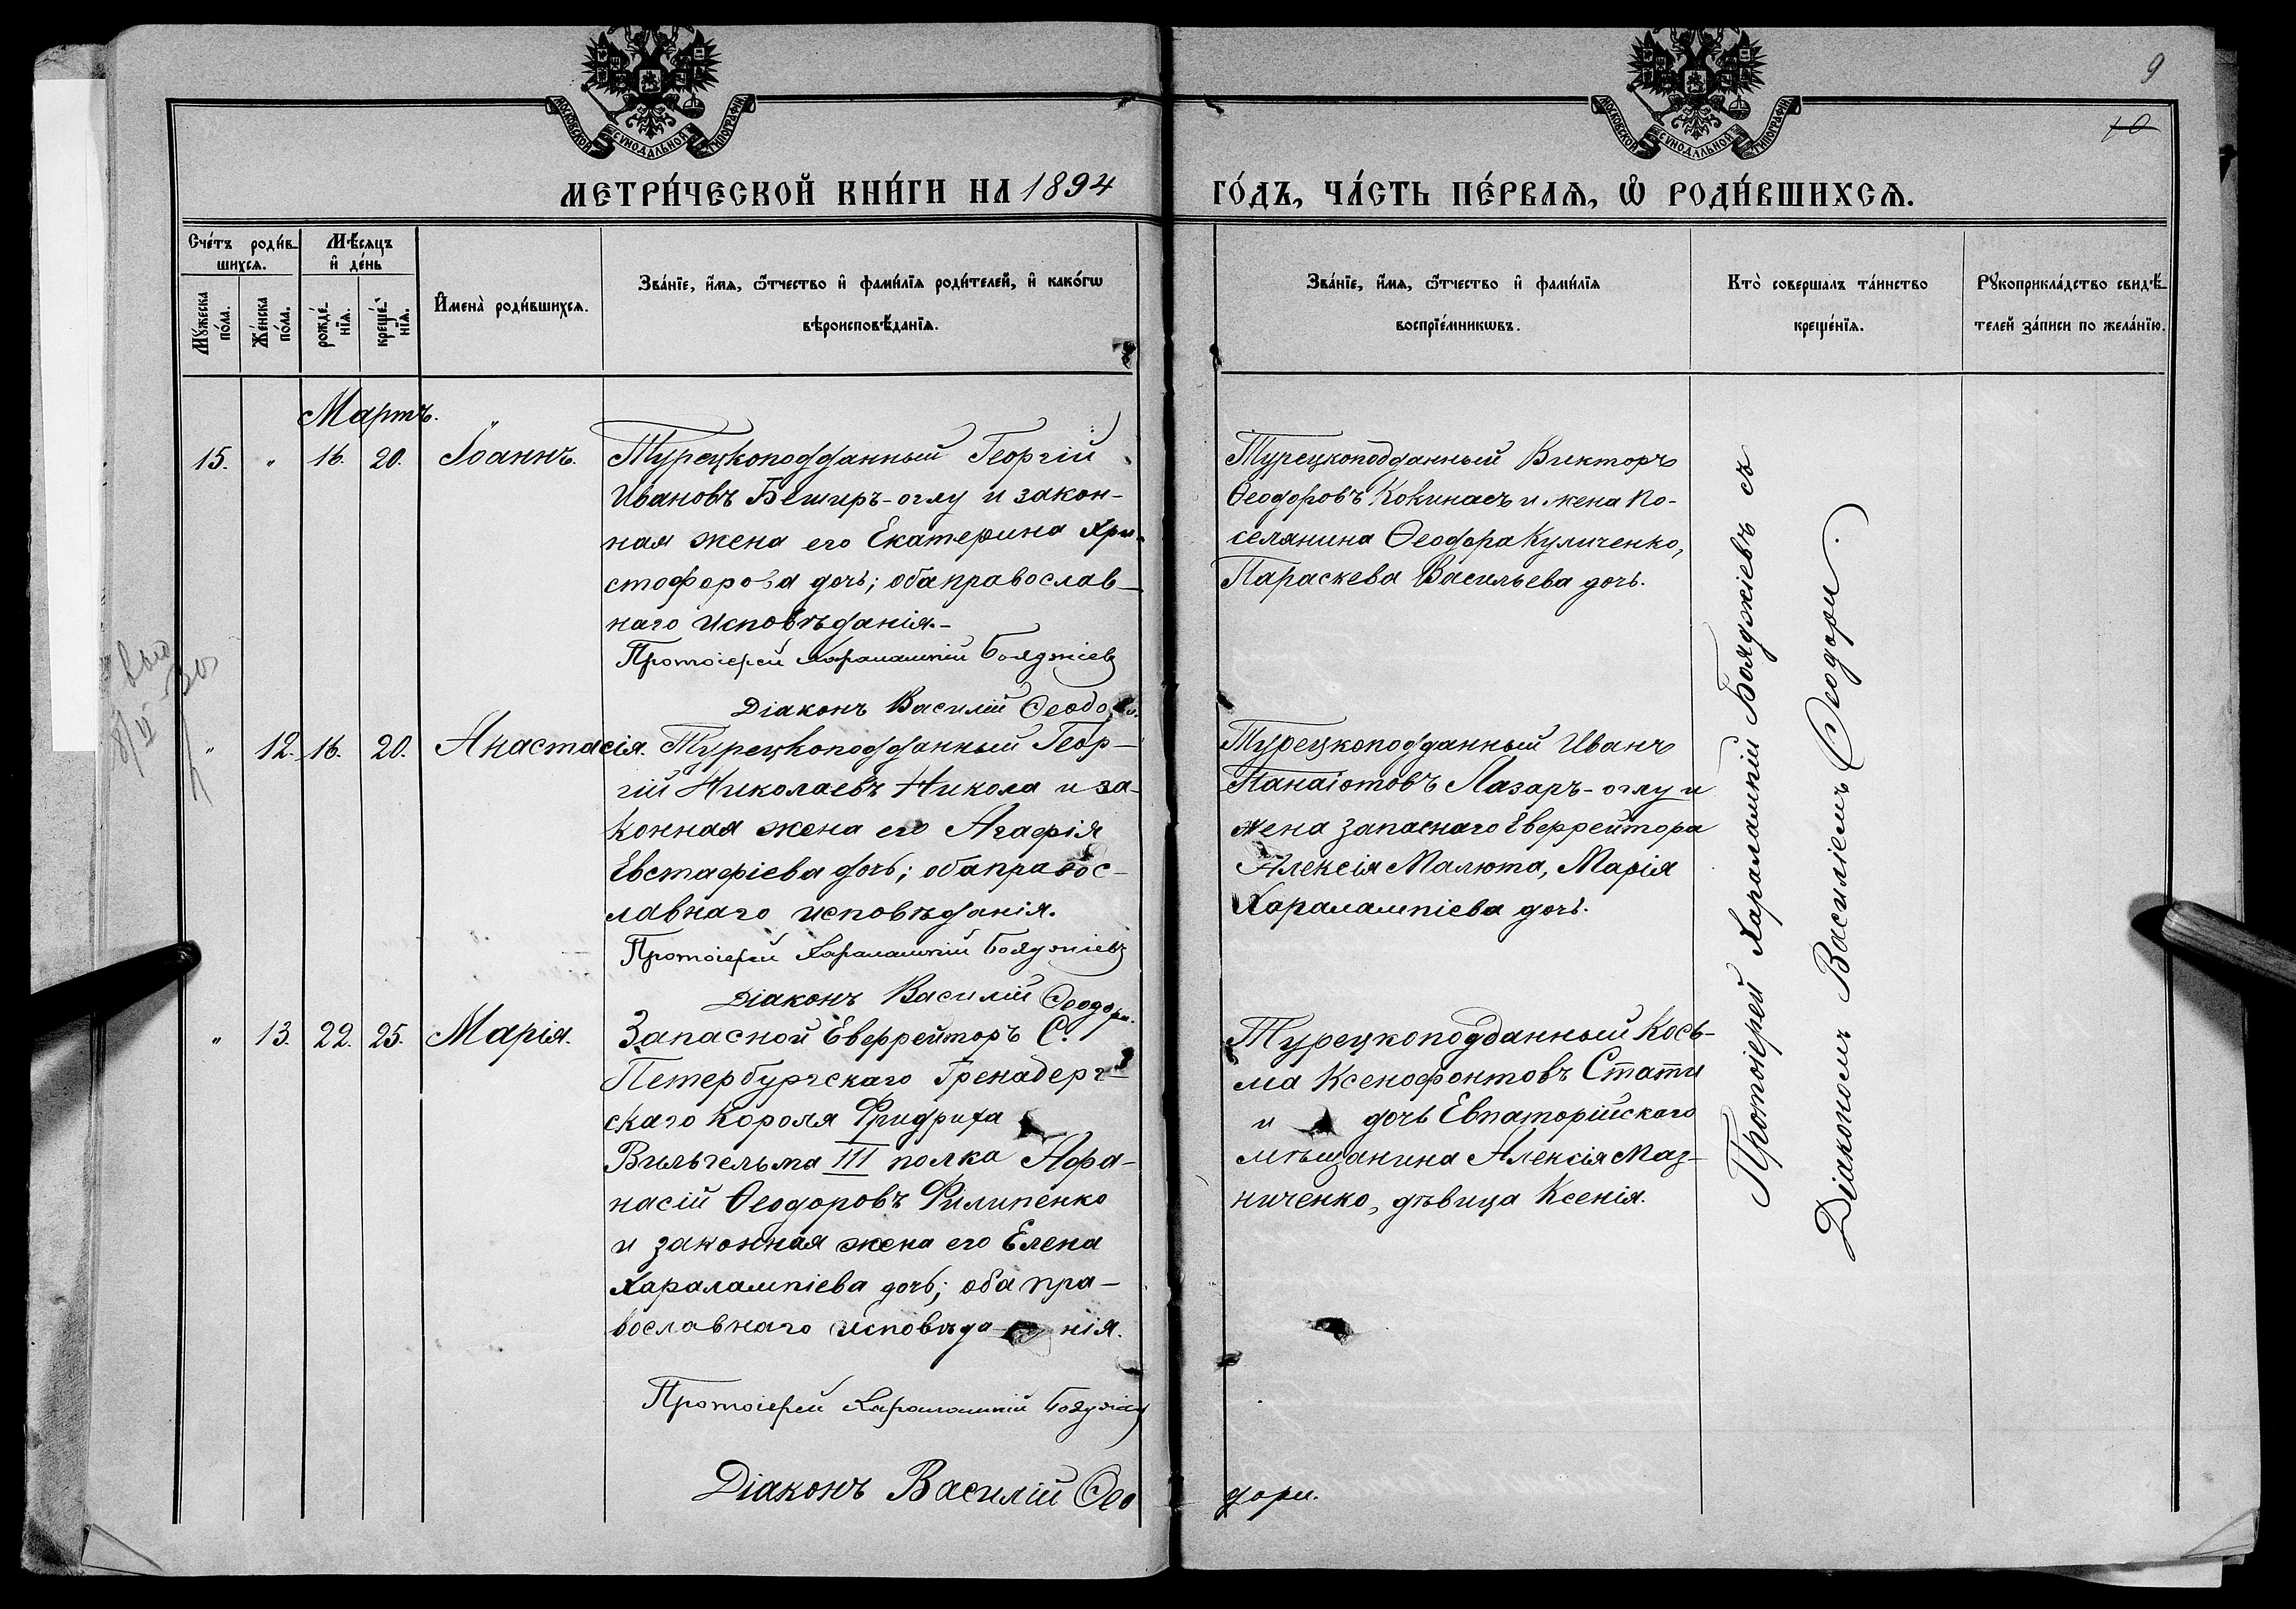 9
10
МОСКОВСКОЙ СѴНОДАЛЬНОЙ ТИПОГРАФІИ
МОСКОВСКОЙ СѴНОДАЛЬНОЙ ТИПОГРАФІИ
МЕТРИ́ЧЕСКОЙ КНИ́ГИ НА 1894 ГО́ДЪ, ЧА́СТЬ ПЕ́РВАѦ, Ѡ҆ РОДИ́ВШИХСѦ.
Сче́тъ роди́в-
шихсѧ.
Мꙋ́жеска по́ла.
Же́нска по́ла.
Мѣ́сѧцъ
и҆ де́нь
рожде́-
нїѧ.
креще́-
нїѧ.
И҆мена̀ роди́вшихсѧ.
Зва́нїе, и҆́мѧ, ѻ҆́тчество и҆ фами́лїѧ роди́телей, и҆ како́гѡ
вѣроисповѣ́данїѧ.
Зва́нїе, и҆́мѧ, ѻ҆́тчество и҆ фами́лїѧ
воспрїе́мникѡвъ.
Кто̀ совершалъ та́инство
креще́нїѧ.
Рꙋкоприкла́дство свидѣ́-
телей за́писи по жела́нїю.
Мартъ.
15. " 16. 20. Іоаннъ.
Турецкоподданный Георгій
Ивановъ Беширъ-оглу и закон-
ная жена его Екатерина Хри-
стофорова дочь; оба православ-
наго исповѣданія.-
Протоіерей Харалампій Бояджіевъ
Діаконъ Василій Ѳеодори.
Турецкоподданный Викторъ
Ѳеодоровъ Кокинасъ и жена по-
селянина Ѳеодора Куличенко,
Параскева Васильева дочь.
" 12. 16. 20. Анастасія.
Турецкоподданный Геор-
гій Николаевъ Никола и за-
конная жена его Агафія
Евстафіева дочь; оба правос-
лавнаго исповѣданія.
Протоіерей Харалампій Бояджіевъ
Діаконъ Василій Ѳеодори.
Турецкоподданный Иванъ
Панаіотовъ Лазаръ-оглу и
жена запаснаго Еверрейтора
Алексія Малюта, Марія
Харалампіева дочь.
" 13. 22. 25. Марія.
Запасной Еверрейторъ С.
Петербургскаго Гренадерг-
скаго Короля Фридриха
Вильгельма III полка Афа-
насій Ѳеодоровъ Филипенко
и законная жена его Елена
Харалампіева дочь; оба пра-
вославнаго исповѣда нія.
Протоіерей Харалампій Бояджіевъ
Діаконъ Василій Ѳеодори.
Турецкоподданный Кось-
ма Ксенофонтовъ Стати
и дочь Евпаторійскаго
мѣщанина Алексія Маз-
ниченко, дѣвица Ксенія.
Протоіерей Харалампій Бояджіевъ съ
Діакономъ Василіемъ Ѳеодори.